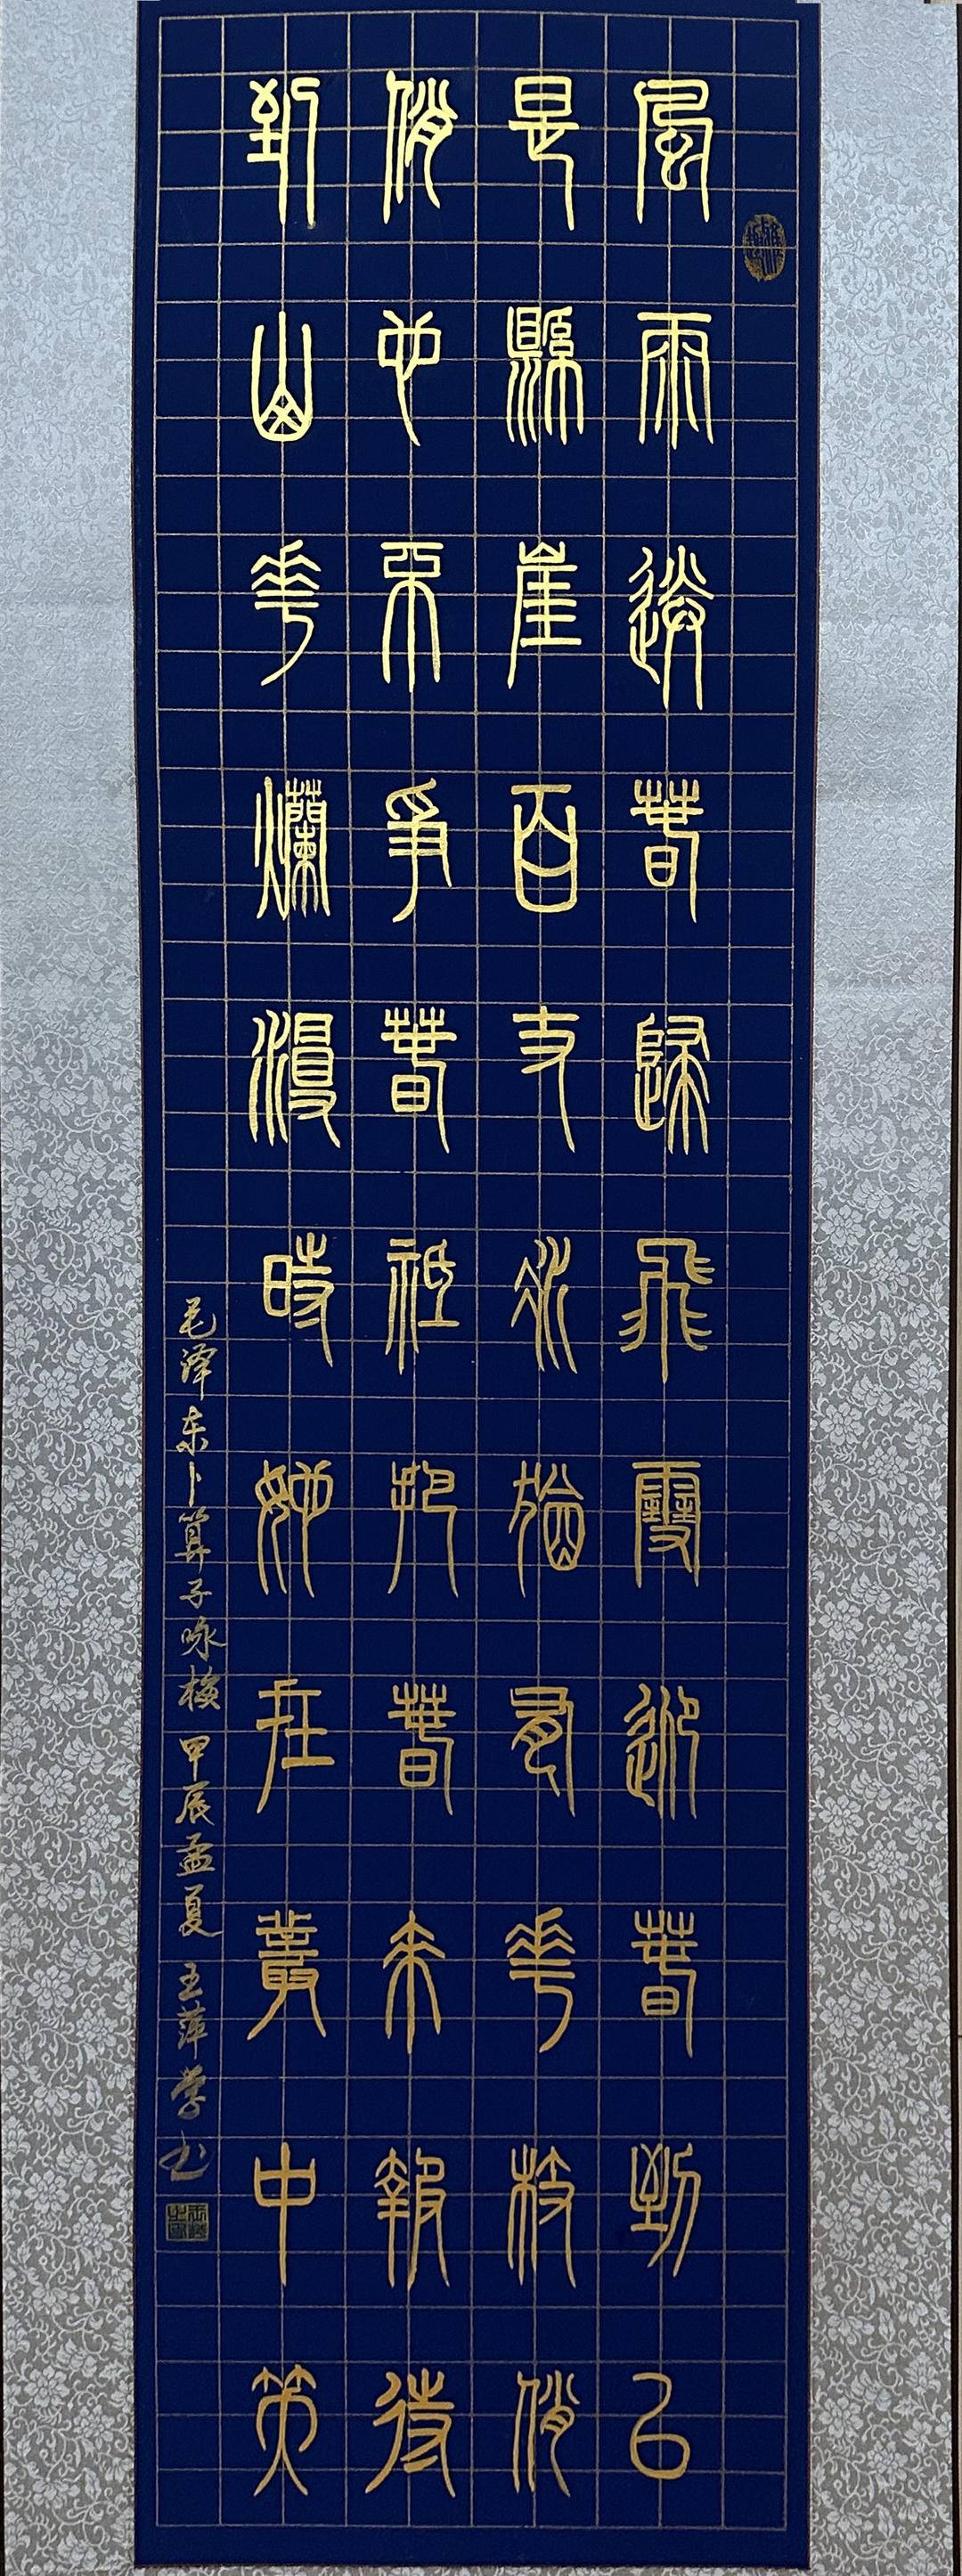 風雨送春歸飛雪迎春到已
是縣崖百丈冰猶有花枝俏
俏也不爭春祇把春來報待
到山花爛漫時她在叢中笑
毛泽东卜算子咏梅 甲辰孟夏 王萍学书